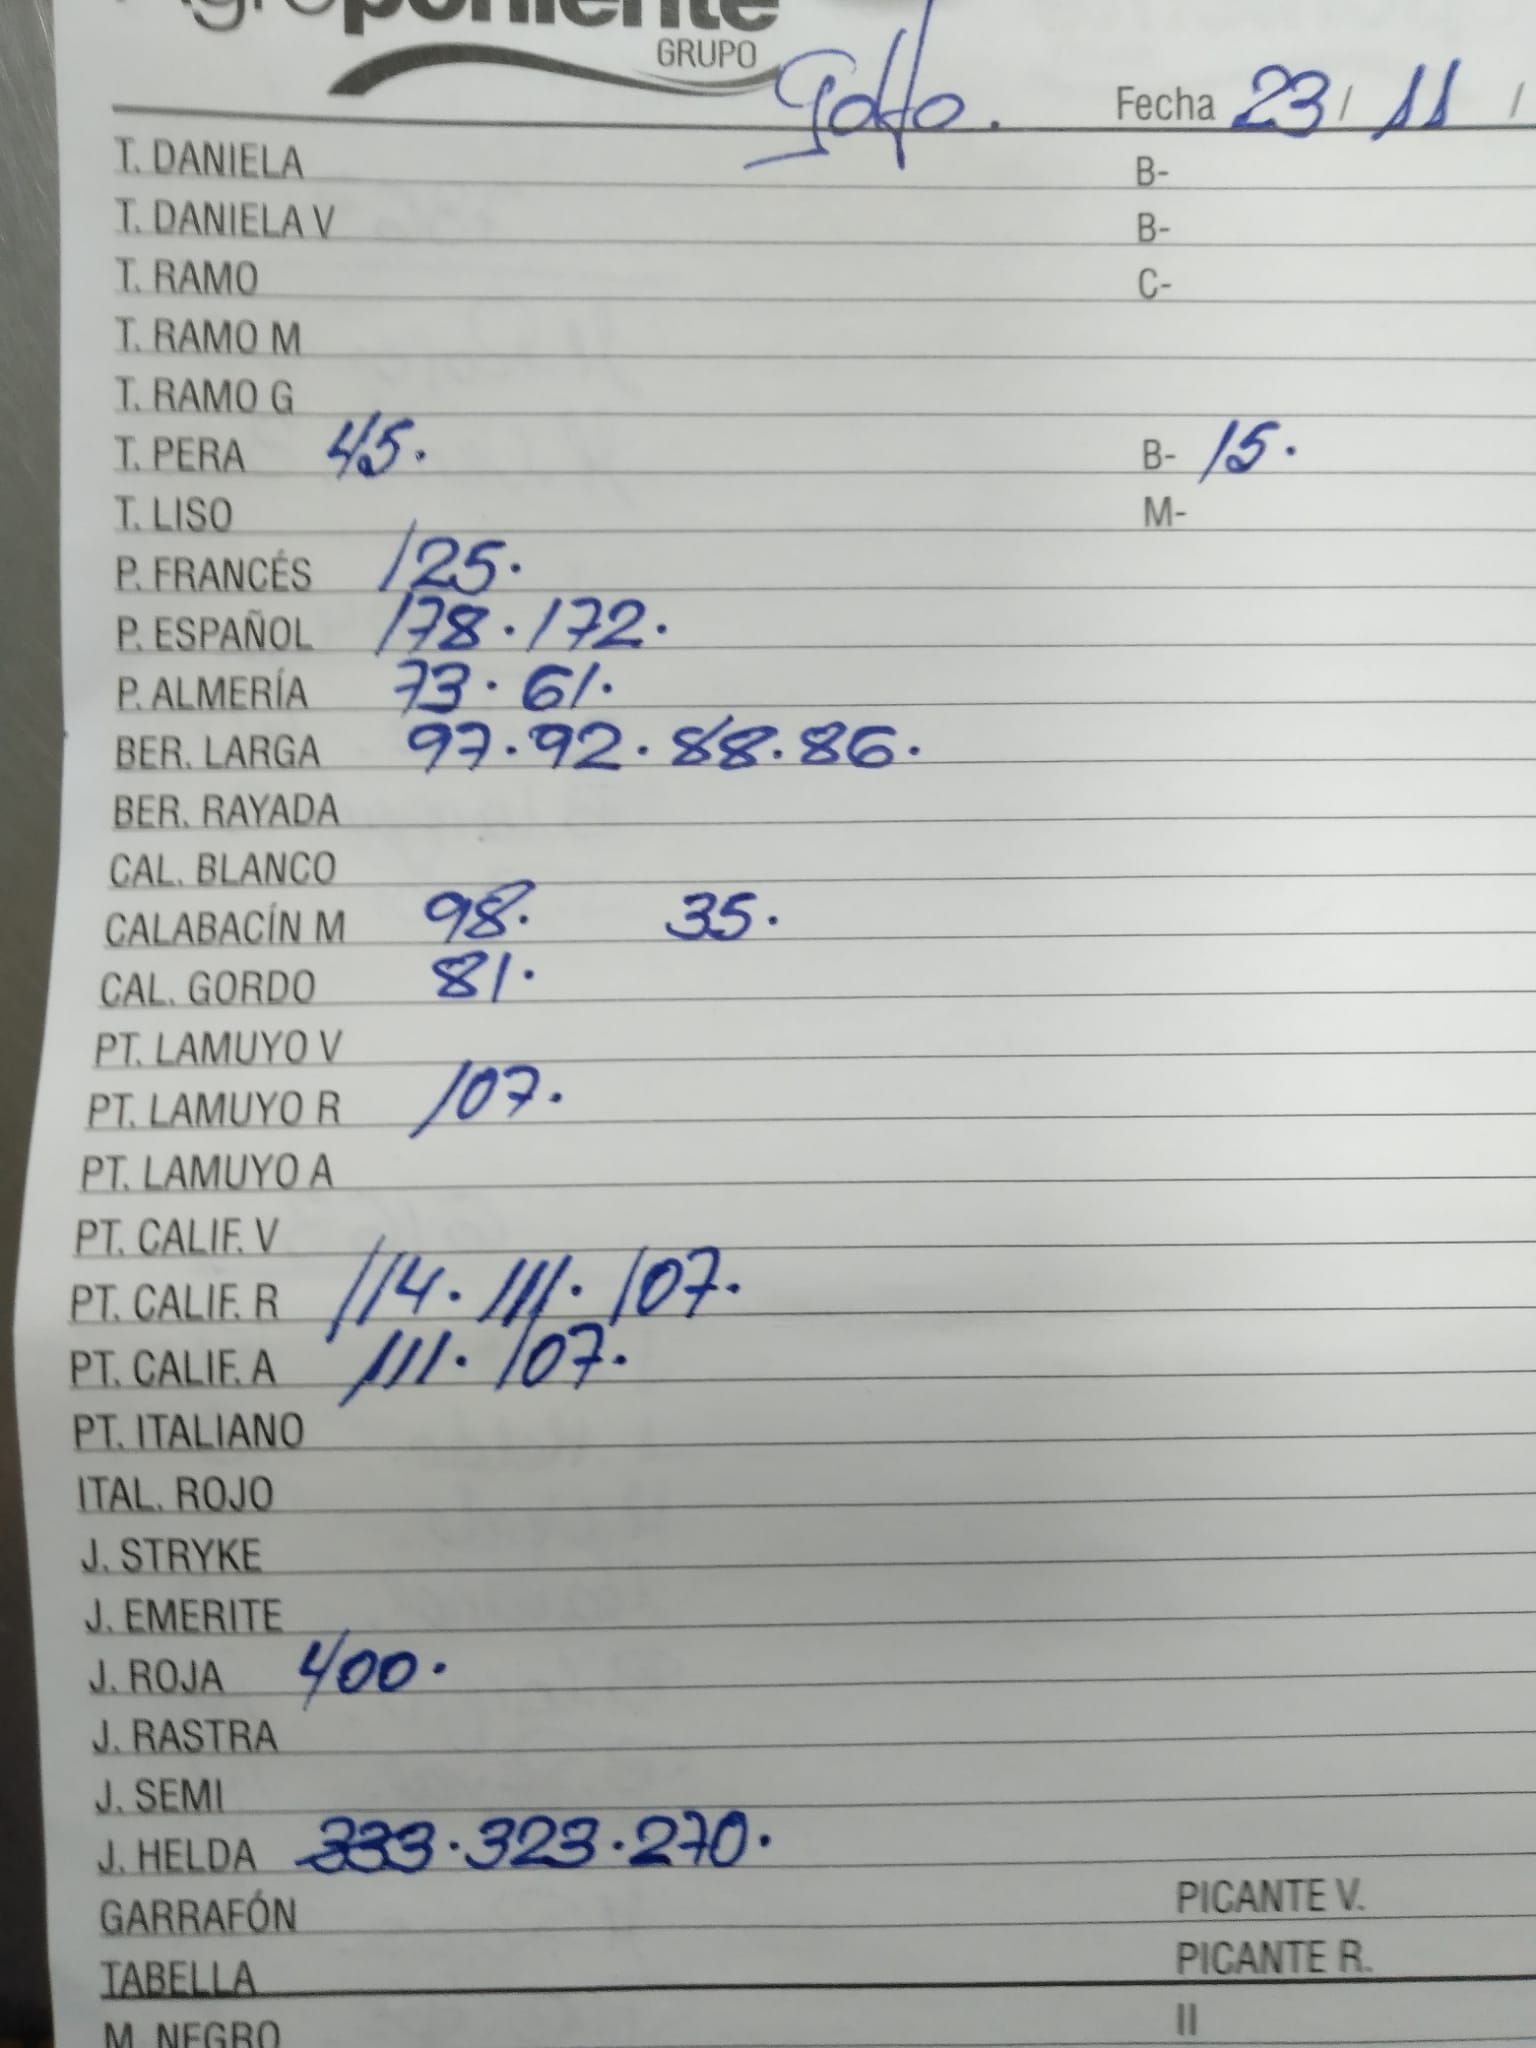 Agroponiente
GRUPO
Golfo.
Fecha 23/ 11 /
T. DANIELA B-
T. DANIELA V B-
T. RAMO C-
T. RAMO M
T. RAMO G
T. PERA 45. B- 15.
T. LISO M-
P. FRANCÉS 125.
P. ESPAÑOL 178. 172.
P. ALMERÍA 73. 61.
BER. LARGA 97. 92. 88. 86.
BER. RAYADA
CAL. BLANCO
CALABACÍN M 98. 35.
CAL. GORDO 81.
PT. LAMUYO V
PT. LAMUYO R 107.
PT. LAMUYO A
PT. CALIF. V
PT. CALIF. R 114. 111. 107.
PT. CALIF. A 111. 107.
PT. ITALIANO
ITAL. ROJO
J. STRYKE
J. EMERITE
J. ROJA 400.
J. RASTRA
J. SEMI
J. HELDA 333. 323. 270.
GARRAFÓN PICANTE V.
TABELLA PICANTE R.
M. NEGRO II